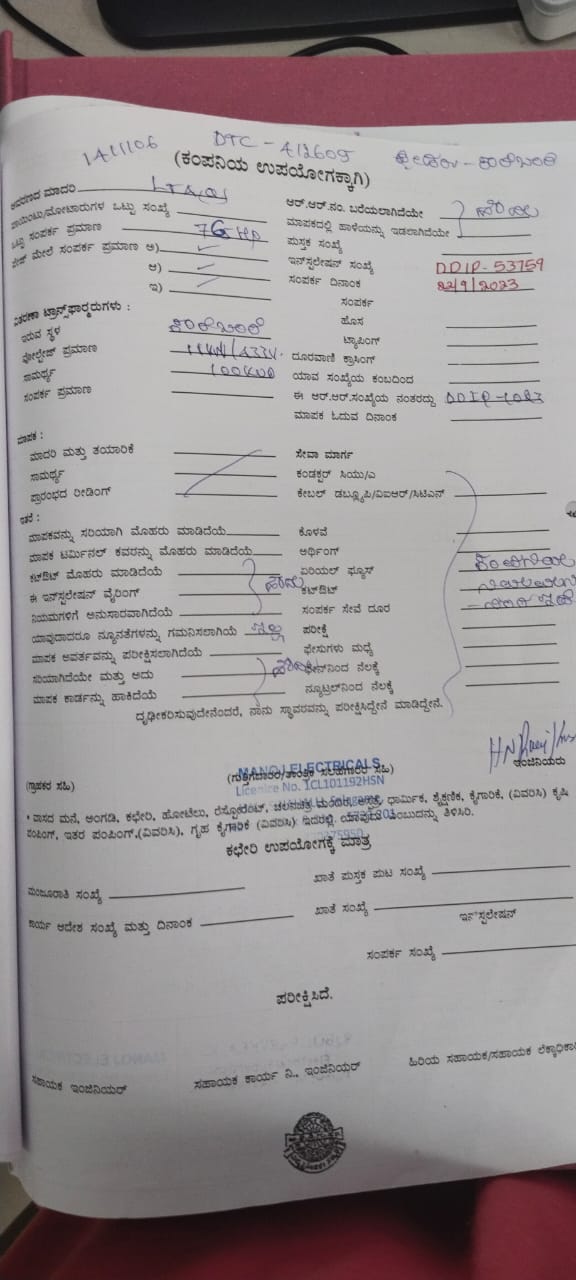 1411106 DTC - 412609
(ಕಂಪನಿಯ ಉಪಯೋಗಕ್ಕಾಗಿ)
ಮಾದರಿ
ಪಾಯಿಂಟು/ಮೋಟಾರುಗಳ ಒಟ್ಟು ಸಂಖ್ಯೆ
ಒಟ್ಟು ಸಂಪರ್ಕ ಪ್ರಮಾಣ 76 HP
ಮೇಲೆ ಸಂಪರ್ಕ ಪ್ರಮಾಣ ಅ)
ಆ)
ಇ)
ವಿತರಣಾ ಟ್ರಾನ್ಸ್‌ಫಾರ್ಮರುಗಳು :
ಇರುವ ಸ್ಥಳ
ವೋಲ್ಟೇಜ್ ಪ್ರಮಾಣ 11KV/433V.
ಸಾಮರ್ಥ್ಯ 100KVA
ಸಂಪರ್ಕ ಪ್ರಮಾಣ
ಆರ್.ಆರ್.ನಂ. ಬರೆಯಲಾಗಿದೆಯೇ
ಮಾಪಕದಲ್ಲಿ ಹಾಳೆಯನ್ನು ಇಡಲಾಗಿದೆಯೇ
ಪುಸ್ತಕ ಸಂಖ್ಯೆ
ಇನ್‌ಸ್ಟಲೇಷನ್ ಸಂಖ್ಯೆ DDIP-53759
ಸಂಪರ್ಕ ದಿನಾಂಕ 22/9/2023
ಸಂಪರ್ಕ
ಹೊಸ
ಟ್ಯಾಪಿಂಗ್
ದೂರವಾಣಿ ಕ್ರಾಸಿಂಗ್
ಯಾವ ಸಂಖ್ಯೆಯ ಕಂಬದಿಂದ
ಈ ಆರ್.ಆರ್.ಸಂಖ್ಯೆಯ ನಂತರದ್ದು DDIP-1083
ಮಾಪಕ ಓದುವ ದಿನಾಂಕ
ಮಾಪಕ :
ಮಾದರಿ ಮತ್ತು ತಯಾರಿಕೆ
ಸಾಮರ್ಥ್ಯ
ಪ್ರಾರಂಭದ ರೀಡಿಂಗ್
ಇತರೆ :
ಮಾಪಕವನ್ನು ಸರಿಯಾಗಿ ಮೊಹರು ಮಾಡಿದೆಯೆ
ಮಾಪಕ ಟರ್ಮಿನಲ್ ಕವರನ್ನು ಮೊಹರು ಮಾಡಿದೆಯೆ
ಕಟ್‌ಔಟ್ ಮೊಹರು ಮಾಡಿದೆಯೆ
ಈ ಇನ್‌ಸ್ಟಲೇಷನ್ ವೈರಿಂಗ್ ಹೌದು
ನಿಯಮಗಳಿಗೆ ಅನುಸಾರವಾಗಿದೆಯೆ
ಯಾವುದಾದರೂ ನ್ಯೂನತೆಗಳನ್ನು ಗಮನಿಸಲಾಗಿಯೆ ಇಲ್ಲ
ಮಾಪಕ ಆವರ್ತವನ್ನು ಪರೀಕ್ಷಿಸಲಾಗಿದೆಯೆ
ಸರಿಯಾಗಿದೆಯೇ ಮತ್ತು ಅದು
ಮಾಪಕ ಕಾರ್ಡನ್ನು ಹಾಕಿದೆಯೆ
ಸೇವಾ ಮಾರ್ಗ
ಕಂಡಕ್ಟರ್ ಸಿಯು/ಎ
ಕೇಬಲ್ ಡಬ್ಲ್ಯೂಪಿ/ವಿಐಆರ್/ಸಿಟಿಎಸ್
ಕೊಳವೆ
ಅರ್ಥಿಂಗ್
ಏರಿಯಲ್ ಫ್ಯೂಸ್
ಕಟ್‌ಔಟ್
ಸಂಪರ್ಕ ಸೇವೆ ದೂರ
ಪರೀಕ್ಷೆ
ಫೇಸುಗಳು ಮಧ್ಯೆ
ಫೇಸ್‌ನಿಂದ ನೆಲಕ್ಕೆ
ನ್ಯೂಟ್ರಲ್‌ನಿಂದ ನೆಲಕ್ಕೆ
ದೃಢೀಕರಿಸುವುದೇನೆಂದರೆ, ನಾನು ಸ್ಥಾವರವನ್ನು ಪರೀಕ್ಷಿಸಿದ್ದೇನೆ ಮಾಡಿದ್ದೇನೆ.
ಇಂಜಿನಿಯರು
(ಗ್ರಾಹಕರ ಸಹಿ)
(ಗುತ್ತಿಗೆದಾರರ/ತಾಂತ್ರಿಕ ಸಲಹಗಾರರ ಸಹಿ)
MANOJ ELECTRICALS
Licence No. 1CL101192HSN
* ವಾಸದ ಮನೆ, ಅಂಗಡಿ, ಕಛೇರಿ, ಹೋಟೆಲು, ರೆಸ್ಟೋರೆಂಟ್, ಚಲನಚಿತ್ರ ಮಂದಿರ, ಆಸ್ಪತ್ರೆ, ಧಾರ್ಮಿಕ, ಶೈಕ್ಷಣಿಕ, ಕೈಗಾರಿಕೆ, (ವಿವರಿಸಿ) ಕೃಷಿ
ಪಂಪಿಂಗ್, ಇತರ ಪಂಪಿಂಗ್,(ವಿವರಿಸಿ), ಗೃಹ ಕೈಗಾರಿಕೆ (ವಿವರಿಸಿ) ಇದರಲ್ಲಿ ಯಾವುದು ಎಂಬುದನ್ನು ತಿಳಿಸಿರಿ.
ಕಛೇರಿ ಉಪಯೋಗಕ್ಕೆ ಮಾತ್ರ
ಮಂಜೂರಾತಿ ಸಂಖ್ಯೆ
ಖಾತೆ ಪುಸ್ತಕ ಪುಟ ಸಂಖ್ಯೆ
ಕಾರ್ಯ ಆದೇಶ ಸಂಖ್ಯೆ ಮತ್ತು ದಿನಾಂಕ
ಖಾತೆ ಸಂಖ್ಯೆ
ಇನ್‌ಸ್ಟಲೇಷನ್
ಸಂಪರ್ಕ ಸಂಖ್ಯೆ
ಪರೀಕ್ಷಿಸಿದೆ.
ಸಹಾಯಕ ಇಂಜಿನಿಯರ್
ಸಹಾಯಕ ಕಾರ್ಯ ನಿ., ಇಂಜಿನಿಯರ್
ಹಿರಿಯ ಸಹಾಯಕ/ಸಹಾಯಕ ಲೆಕ್ಕಾಧಿಕಾರಿ